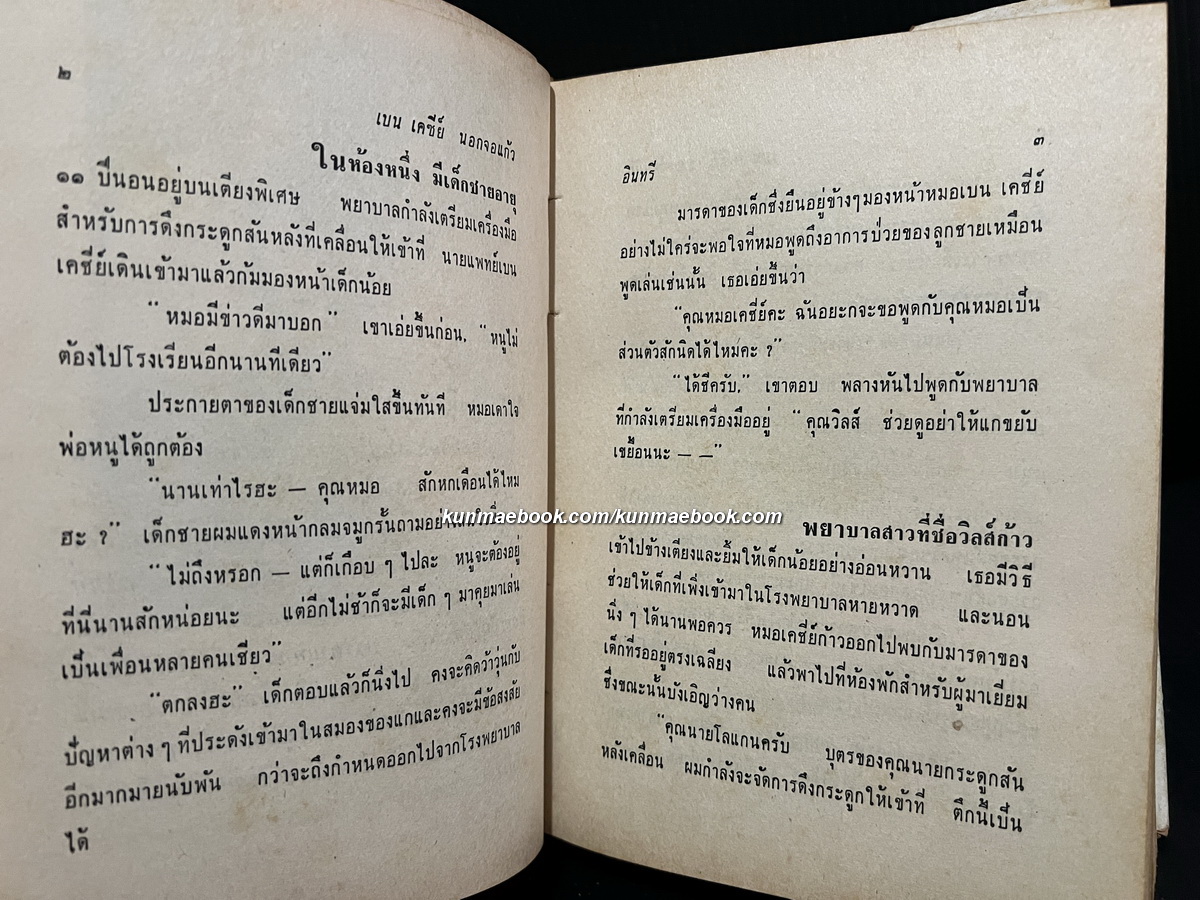 ๒
เบน เคซีย์ นอกจอแก้ว
ในห้องหนึ่ง มีเด็กชายอายุ
๑๑ ปีนอนอยู่บนเตียงพิเศษ พยาบาลกำลังเตรียมเครื่องมือ
สำหรับการดึงกระดูกสันหลังที่เคลื่อนให้เข้าที่ นายแพทย์เบน
เคซีย์เดินเข้ามาแล้วก้มมองหน้าเด็กน้อย
"หมอมีข่าวดีมาบอก" เขาเอ่ยขึ้นก่อน, "หนูไม่
ต้องไปโรงเรียนอีกนานทีเดียว"
ประกายตาของเด็กชายแจ่มใสขึ้นทันที หมอเดาใจ
พ่อหนูได้ถูกต้อง
"นานเท่าไรฮะ — คุณหมอ สักหกเดือนได้ไหม
ฮะ ?" เด็กชายผมแดงหน้ากลมจมูกรั้นถามอย่าง
"ไม่ถึงหรอก — แต่ก็เกือบ ๆ ไปละ หนูจะต้องอยู่
ที่นี่นานสักหน่อยนะ แต่อีกไม่ช้าก็จะมีเด็ก ๆ มาคุยมาเล่น
เป็นเพื่อนหลายคนเชียว"
"ตกลงฮะ" เด็กตอบแล้วก็นิ่งไป คงจะคิดว้าวุ่นกับ
ปัญหาต่าง ๆ ที่ประดังเข้ามาในสมองของแกและคงจะมีข้อสงสัย
อีกมากมายนับพัน กว่าจะถึงกำหนดออกไปจากโรงพยาบาล
ได้
๓
อินทรี
มารดาของเด็กซึ่งยืนอยู่ข้างๆมองหน้าหมอเบน เคซีย์
อย่างไม่ใคร่จะพอใจที่หมอพูดถึงอาการป่วยของลูกชายเหมือน
พูดเล่นเช่นนั้น เธอเอ่ยขึ้นว่า
"คุณหมอเคซีย์คะ ฉันอยะกจะขอพูดกับคุณหมอเป็น
ส่วนตัวสักนิดได้ไหมคะ ?"
"ได้ซีครับ," เขาตอบ พลางหันไปพูดกับพยาบาล
ที่กำลังเตรียมเครื่องมืออยู่ "คุณวิลส์ ช่วยดูอย่าให้แกขยับ
เขยื้อนนะ — —"
kunmaebook.com/kunmaebook.com
พยาบาลสาวที่ชื่อวิลส์ก้าว
เข้าไปข้างเตียงและยิ้มให้เด็กน้อยอย่างอ่อนหวาน เธอมีวิธี
ช่วยให้เด็กที่เพิ่งเข้ามาในโรงพยาบาลหายหวาด และนอน
นิ่ง ๆ ได้นานพอควร หมอเคซีย์ก้าวออกไปพบกับมารดาของ
เด็กที่รออยู่ตรงเฉลียง แล้วพาไปที่ห้องพักสำหรับผู้มาเยี่ยม
ซึ่งขณะนั้นบังเอิญว่างคน
"คุณนายโลแกนครับ บุตรของคุณนายกระดูกสัน
หลังเคลื่อน ผมกำลังจะจัดการดึงกระดูกให้เข้าที่ ตึกนี้เป็น